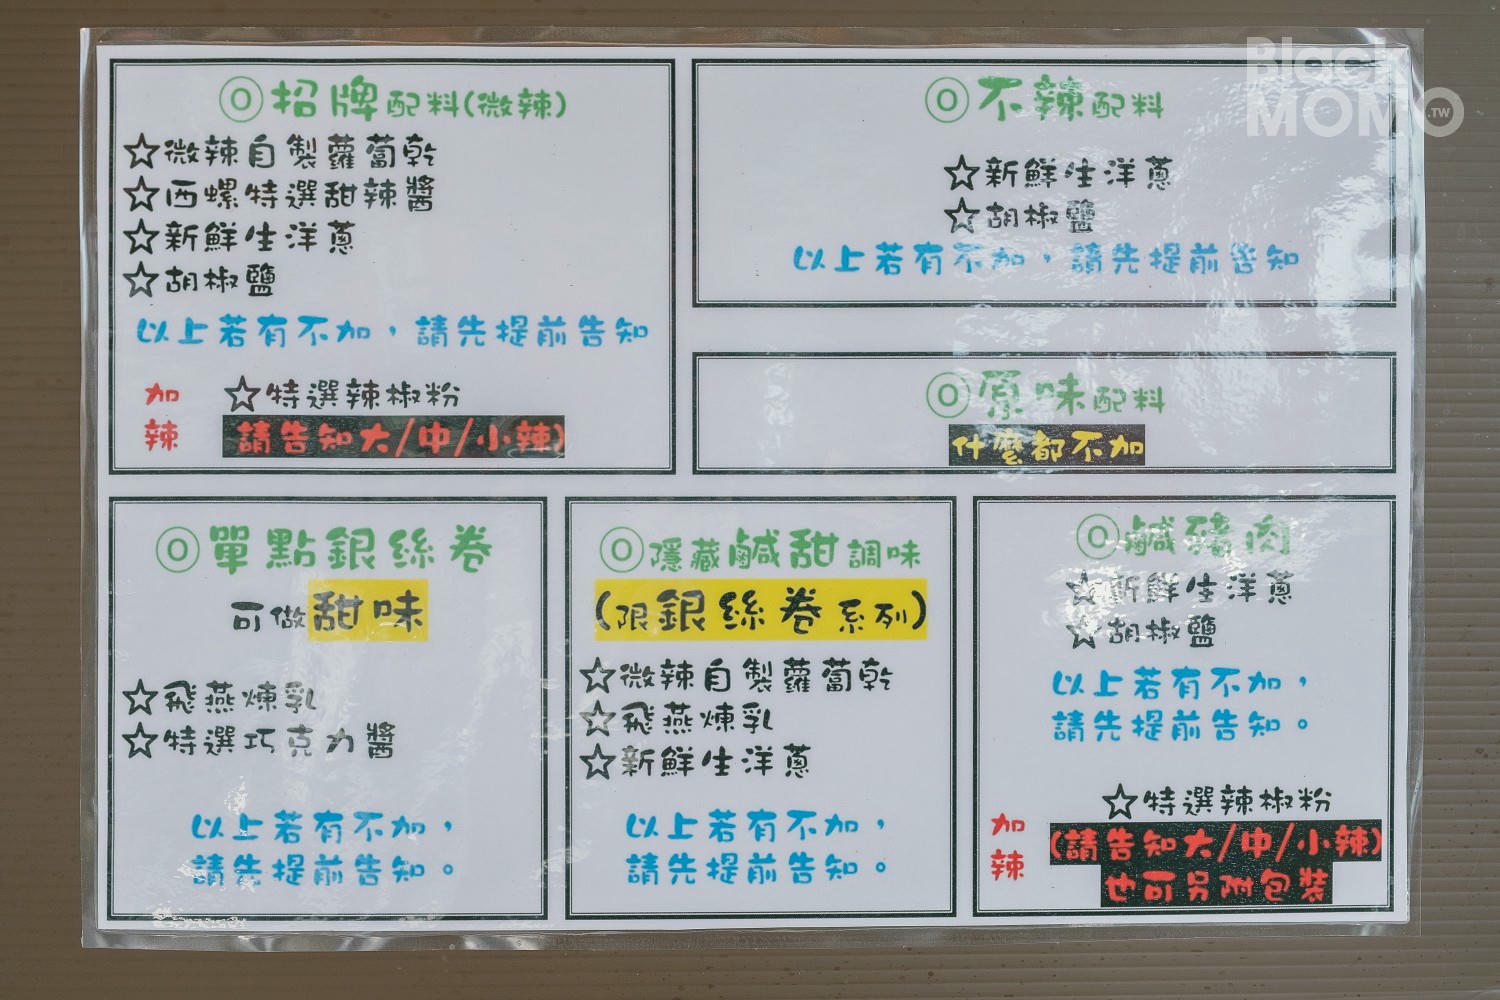 ◎招牌配料(微辣)
☆微辣自製蘿蔔乾
☆西螺特選甜辣醬
☆新鮮生洋蔥
☆胡椒鹽
以上若有不加，請先提前告知
加辣
☆特選辣椒粉
請告知大/中/小辣)
◎不辣配料
☆新鮮生洋蔥
☆胡椒鹽
以上若有不加，請先提前告知
◎原味配料
什麼都不加
◎單點銀絲卷
可做甜味
☆飛燕煉乳
☆特選巧克力醬
以上若有不加，
請先提前告知。
◎隱藏鹹甜調味
(限銀絲卷系列)
☆微辣自製蘿蔔乾
☆飛燕煉乳
☆新鮮生洋蔥
以上若有不加，
請先提前告知。
◎鹹豬肉
☆新鮮生洋蔥
☆胡椒鹽
以上若有不加，
請先提前告知。
加辣
☆特選辣椒粉
(請告知大/中/小辣)
也可另附包裝
Black
MOMO.TW